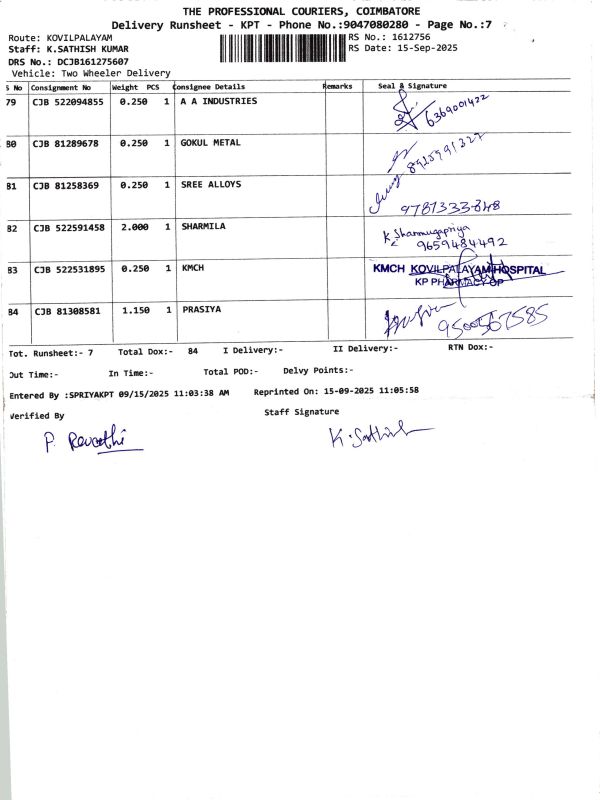 THE PROFESSIONAL COURIERS, COIMBATORE
Delivery Runsheet - KPT - Phone No.:9047080280 - Page No.:7
Route: KOVILPALAYAM
RS No.: 1612756
Staff: K.SATHISH KUMAR
RS Date: 15-Sep-2025
DRS No.: DCJB161275607
Vehicle: Two Wheeler Delivery
S No Consignment No Weight PCS Consignee Details Remarks Seal & Signature
79 CJB 522094855 0.250 1 A A INDUSTRIES 6369001422
80 CJB 81289678 0.250 1 GOKUL METAL 8925991327
81 CJB 81258369 0.250 1 SREE ALLOYS 9787333848
82 CJB 522591458 2.000 1 SHARMILA K Shanmugapriya
9659484492
83 CJB 522531895 0.250 1 KMCH KMCH KOVILPALAYAM HOSPITAL
KP PHARMACY OP
84 CJB 81308581 1.150 1 PRASIYA 9500567585
Tot. Runsheet:- 7 Total Dox:- 84 I Delivery:- II Delivery:- RTN Dox:-
Out Time:- In Time:- Total POD:- Delvy Points:-
Entered By :SPRIYAKPT 09/15/2025 11:03:38 AM Reprinted On: 15-09-2025 11:05:58
Verified By Staff Signature
P. Revathi K. Sathish